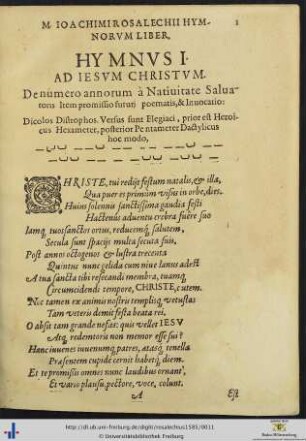 M. IOACHIMI ROSALECHII HYM-
NORVM LIBER.
1
HYMNVS I.
AD IESVM CHRISTVM.
De numero annorum à Natiuitate Salua-
toris Item promissio futuri poematis, & Inuocatio:
Dicolos Distrophos. Versus sunt Elegiaci, prior est Heroi-
cus Hexameter, posterior Pentameter Dactylicus
hoc modo,
CHRISTE, tui redijt festum natalis, & illa,
Qua puer es primùm visus in orbe, dies.
Huius solennis sanctissima gaudia festi
Hactenus aduentu crebra fuêre suo
Iamq́ tuo sanctior ortus, reducemq́ salutem,
Secula sunt spacijs multa secuta suis,
Post annos octogenos & lustra trecenta
Quintus nunc gelida cum niue Ianus adest
A tua sancta tibi resecandi membra, tuamq́
Circumcidendi tempore, CHRISTE, cutem.
Nec tamen ex animis nostris templisq́ vetustas
Tam veteris demit festa beata rei.
O absit tam grande nefas: quis vellet IESV
Atq́ redemtoris non memor esse sui?
Hanc iuuenes iuuenumq́ patres, atasq́ tenella
Præsentem cupidè cernit habetq́ diem.
Et te promissio omnes nunc laudibus ornant,
Et vario plausu, pectore, voce, colunt.
A
Est
http://dl.ub.uni-freiburg.de/diglit/rosalechius1581/0011
© Universitätsbibliothek Freiburg